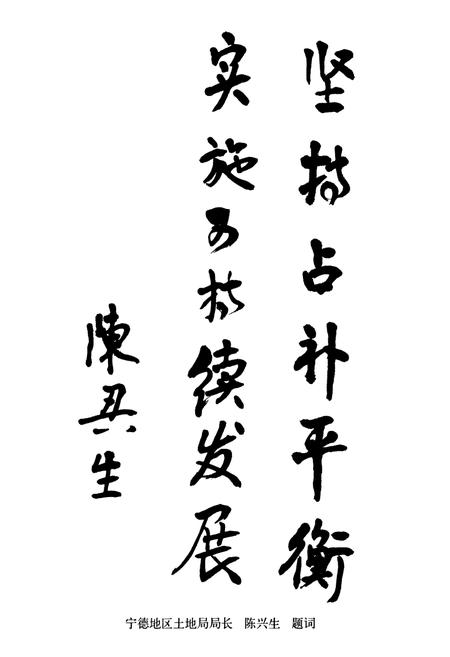 坚持占补平衡
实施可持续发展
陳兴生
宁德地区土地局局长 陈兴生 题词